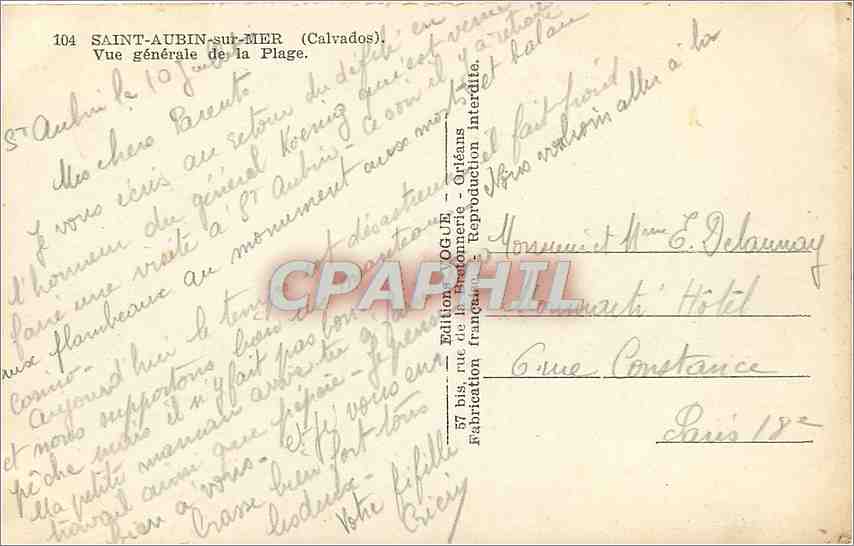 104 SAINT-AUBIN-sur-MER (Calvados).
Vue générale de la Plage.
St Aubin le 10 Juillet
Mes chers Parents
Je vous écris au retour du défilé en
l'honneur du général Koenig qui est venu
faire une visite à St Aubin - ce soir il y a retraite
aux flambeaux au monument aux morts et bal au
casino -
Aujourd'hui le temps est désastreux, il fait froid
et nous supportons bien les manteaux. Nous voulions aller à la
pêche mais il n'y fait pas bon
Ma petite maman as-tu
travail ainsi que pépère - Je pense
bien à vous - Et je vous em
brasse bien fort tous
les deux -
Votre fifille
Cricry
Editions VOGUE
57 bis, rue de la Bretonnerie - Orléans
Fabrication française - Reproduction interdite.
CPAPHIL
Monsieur et Mme E. Delaunay
Hôtel
6 rue Constance
Paris 18e